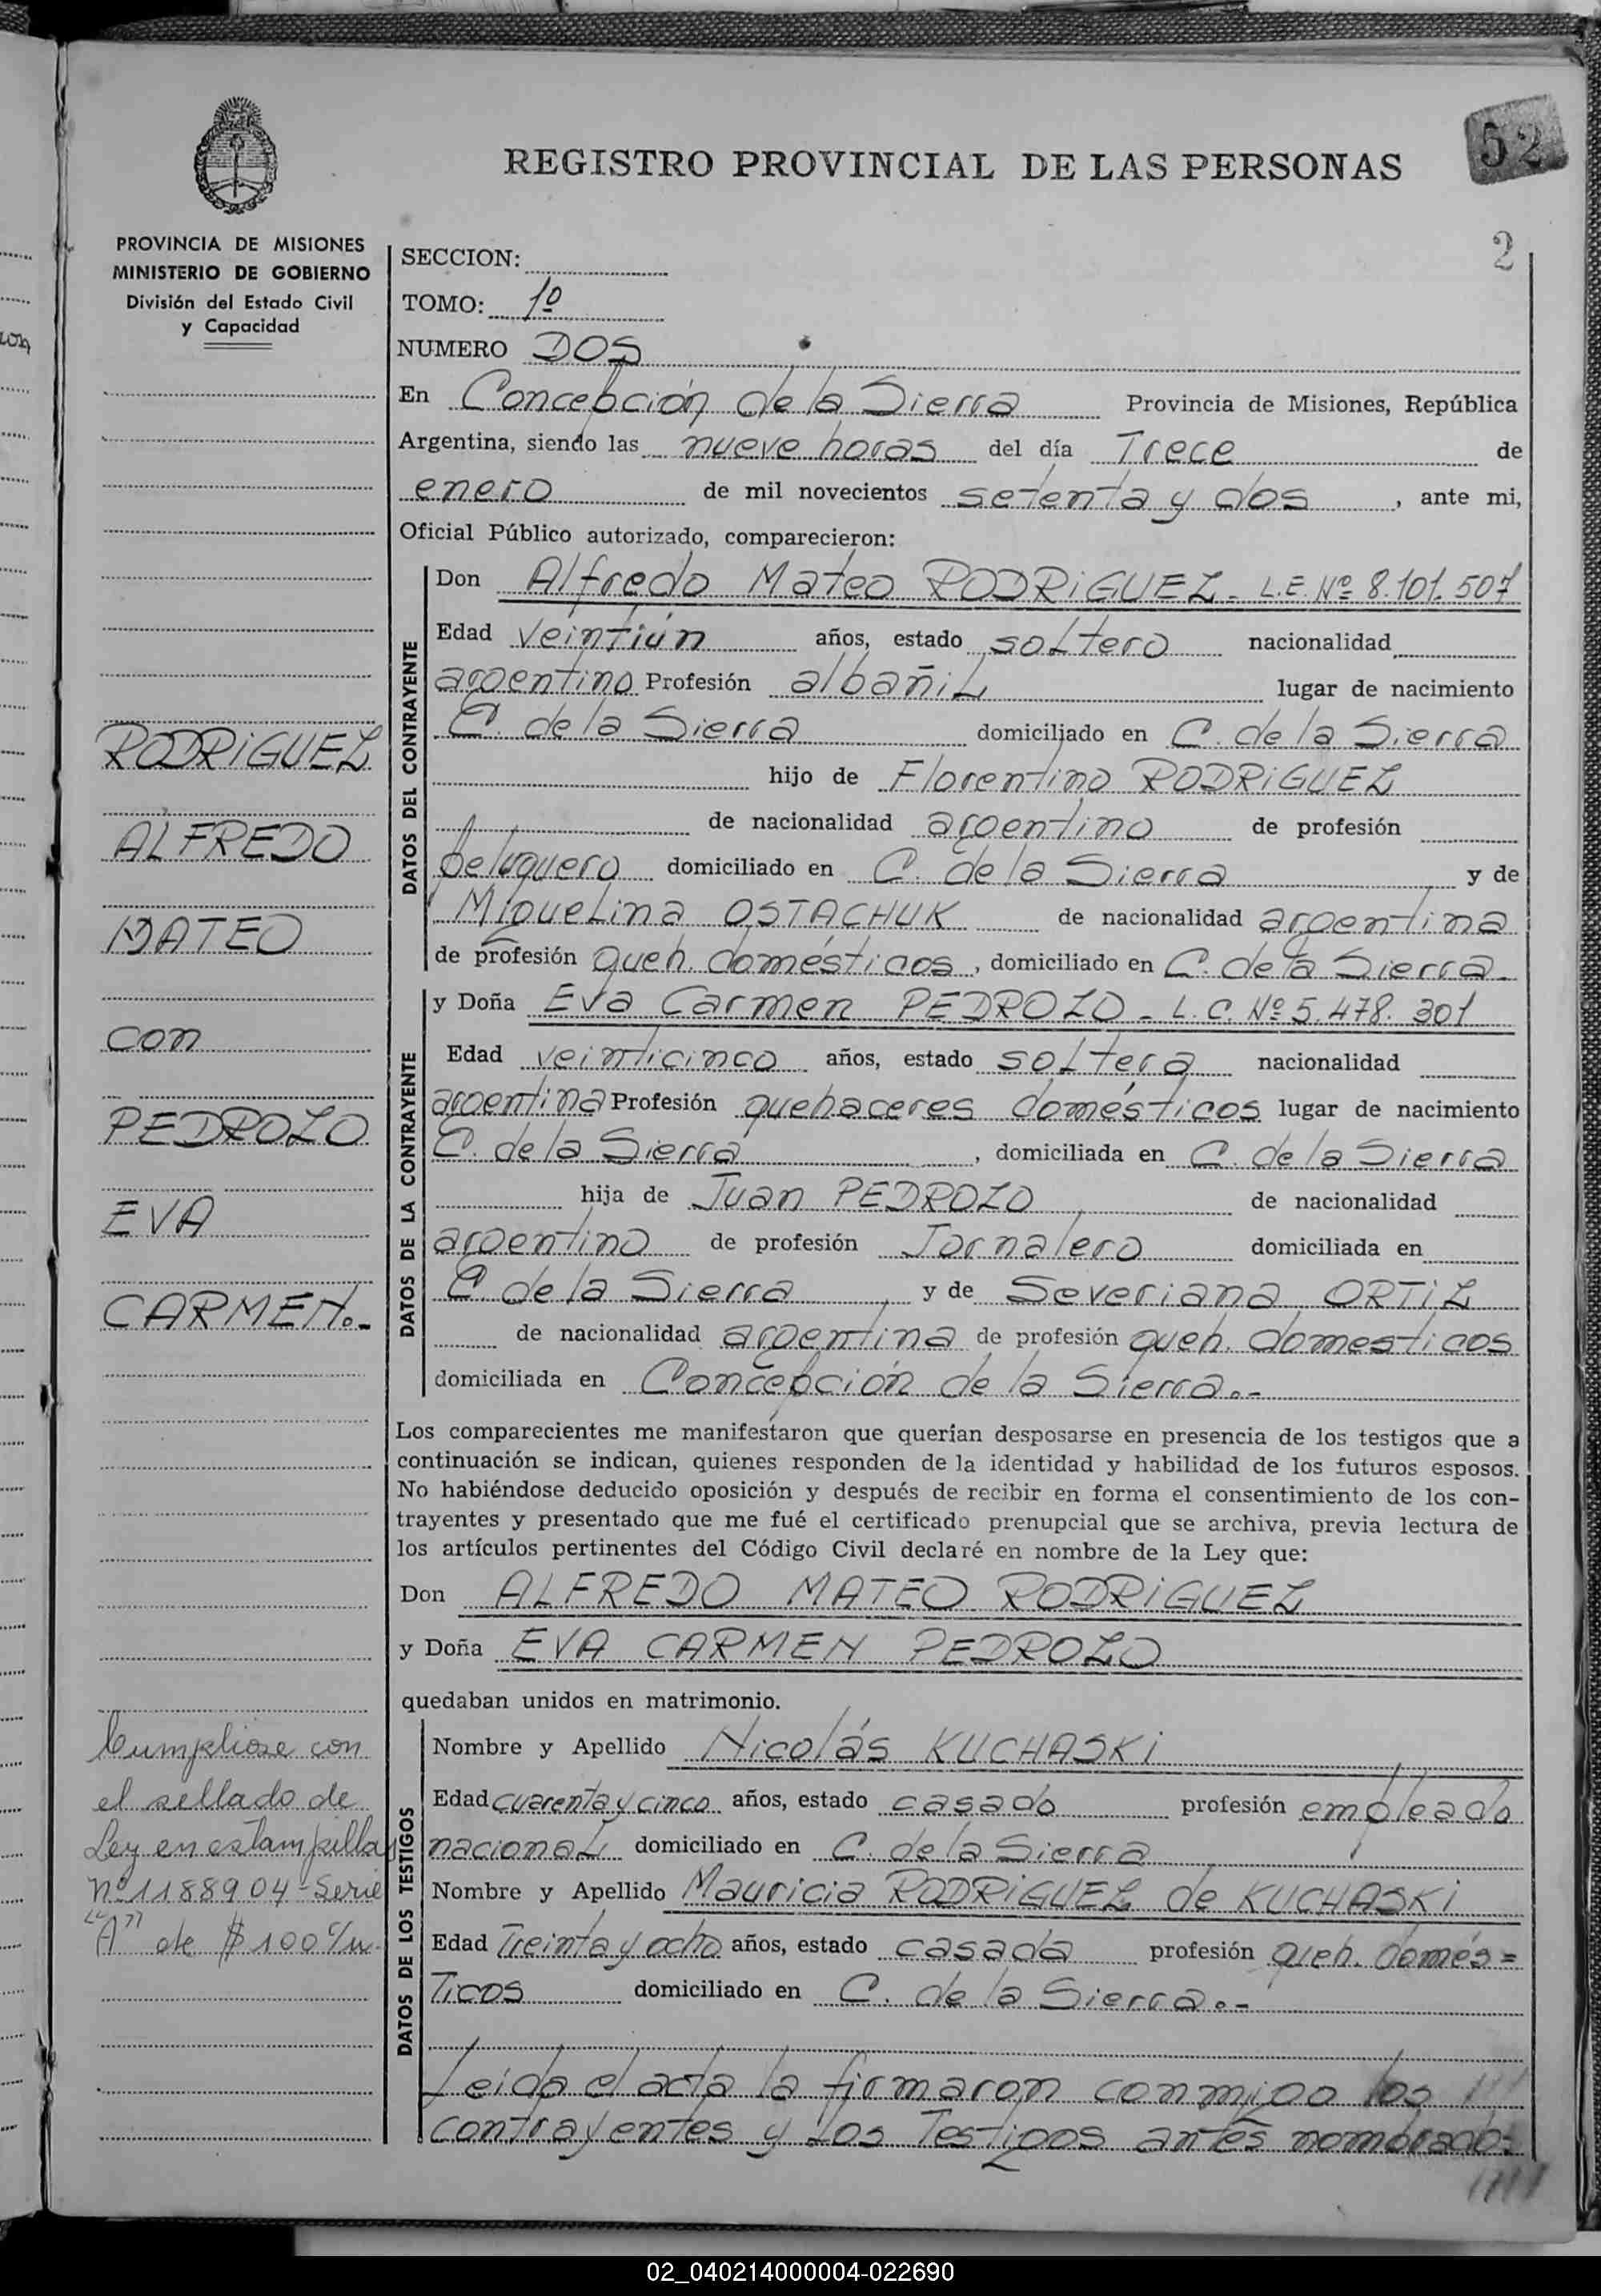 52
REGISTRO PROVINCIAL DE LAS PERSONAS
2
PROVINCIA DE MISIONES
MINISTERIO DE GOBIERNO
División del Estado Civil
y Capacidad
RODRIGUEZ
ALFREDO
MATEO
con
PEDROZO
EVA
CARMEN.-
Cumpliose con
el sellado de
Ley en estampillas
Nº 1188904 - Serie
"A" de $ 100 c/u.
SECCION:
TOMO: 1º
NUMERO DOS
En Concepción de la Sierra Provincia de Misiones, República
Argentina, siendo las nueve horas del día Trece de
enero de mil novecientos setenta y dos, ante mi,
Oficial Público autorizado, comparecieron:
DATOS DEL CONTRAYENTE
Don Alfredo Mateo RODRIGUEZ - L.E. Nº 8.101.507
Edad veintiún años, estado soltero nacionalidad
argentino Profesión albañil lugar de nacimiento
C. de la Sierra domiciliado en C. de la Sierra
hijo de Florentino RODRIGUEZ
de nacionalidad argentino de profesión
peluquero domiciliado en C. de la Sierra y de
Miguelina OSTACHUK de nacionalidad argentina
de profesión queh. domésticos, domiciliado en C. de la Sierra.
DATOS DE LA CONTRAYENTE
y Doña Eva Carmen PEDROZO - L.C. Nº 5.478.301
Edad veinticinco años, estado soltera nacionalidad
argentina Profesión quehaceres domésticos lugar de nacimiento
C. de la Sierra, domiciliada en C. de la Sierra
hija de Juan PEDROZO de nacionalidad
argentino de profesión Jornalero domiciliada en
C. de la Sierra y de Severiana ORTIZ
de nacionalidad argentina de profesión queh. domesticos
domiciliada en Concepción de la Sierra.-
Los comparecientes me manifestaron que querían desposarse en presencia de los testigos que a
continuación se indican, quienes responden de la identidad y habilidad de los futuros esposos.
No habiéndose deducido oposición y después de recibir en forma el consentimiento de los con-
trayentes y presentado que me fué el certificado prenupcial que se archiva, previa lectura de
los artículos pertinentes del Código Civil declaré en nombre de la Ley que:
Don ALFREDO MATEO RODRIGUEZ
y Doña EVA CARMEN PEDROZO
quedaban unidos en matrimonio.
DATOS DE LOS TESTIGOS
Nombre y Apellido Nicolás KUCHASKI
Edad cuarenta y cinco años, estado casado profesión empleado
nacional domiciliado en C. de la Sierra
Nombre y Apellido Mauricia RODRIGUEZ de KUCHASKI
Edad Treinta y ocho años, estado casada profesión queh. domés=
ticos domiciliado en C. de la Sierra.-
Leida el acta la firmaron conmigo los
contrayentes y los Testigos antes nombrados
02_040214000004-022690